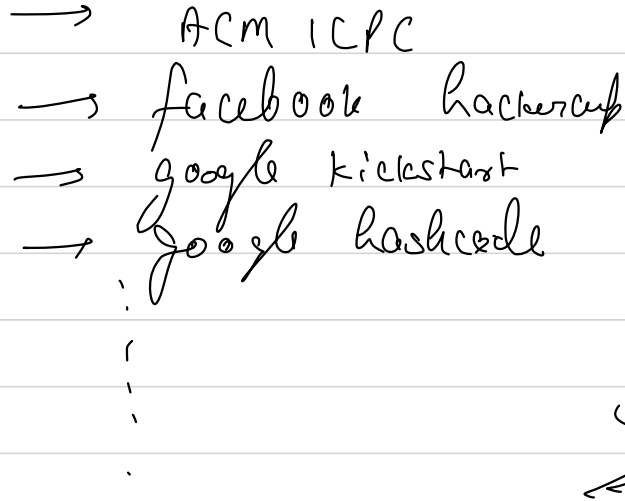 → ACM ICPC
→ facebook hackercup
→ google kickstart
→ google hashcode